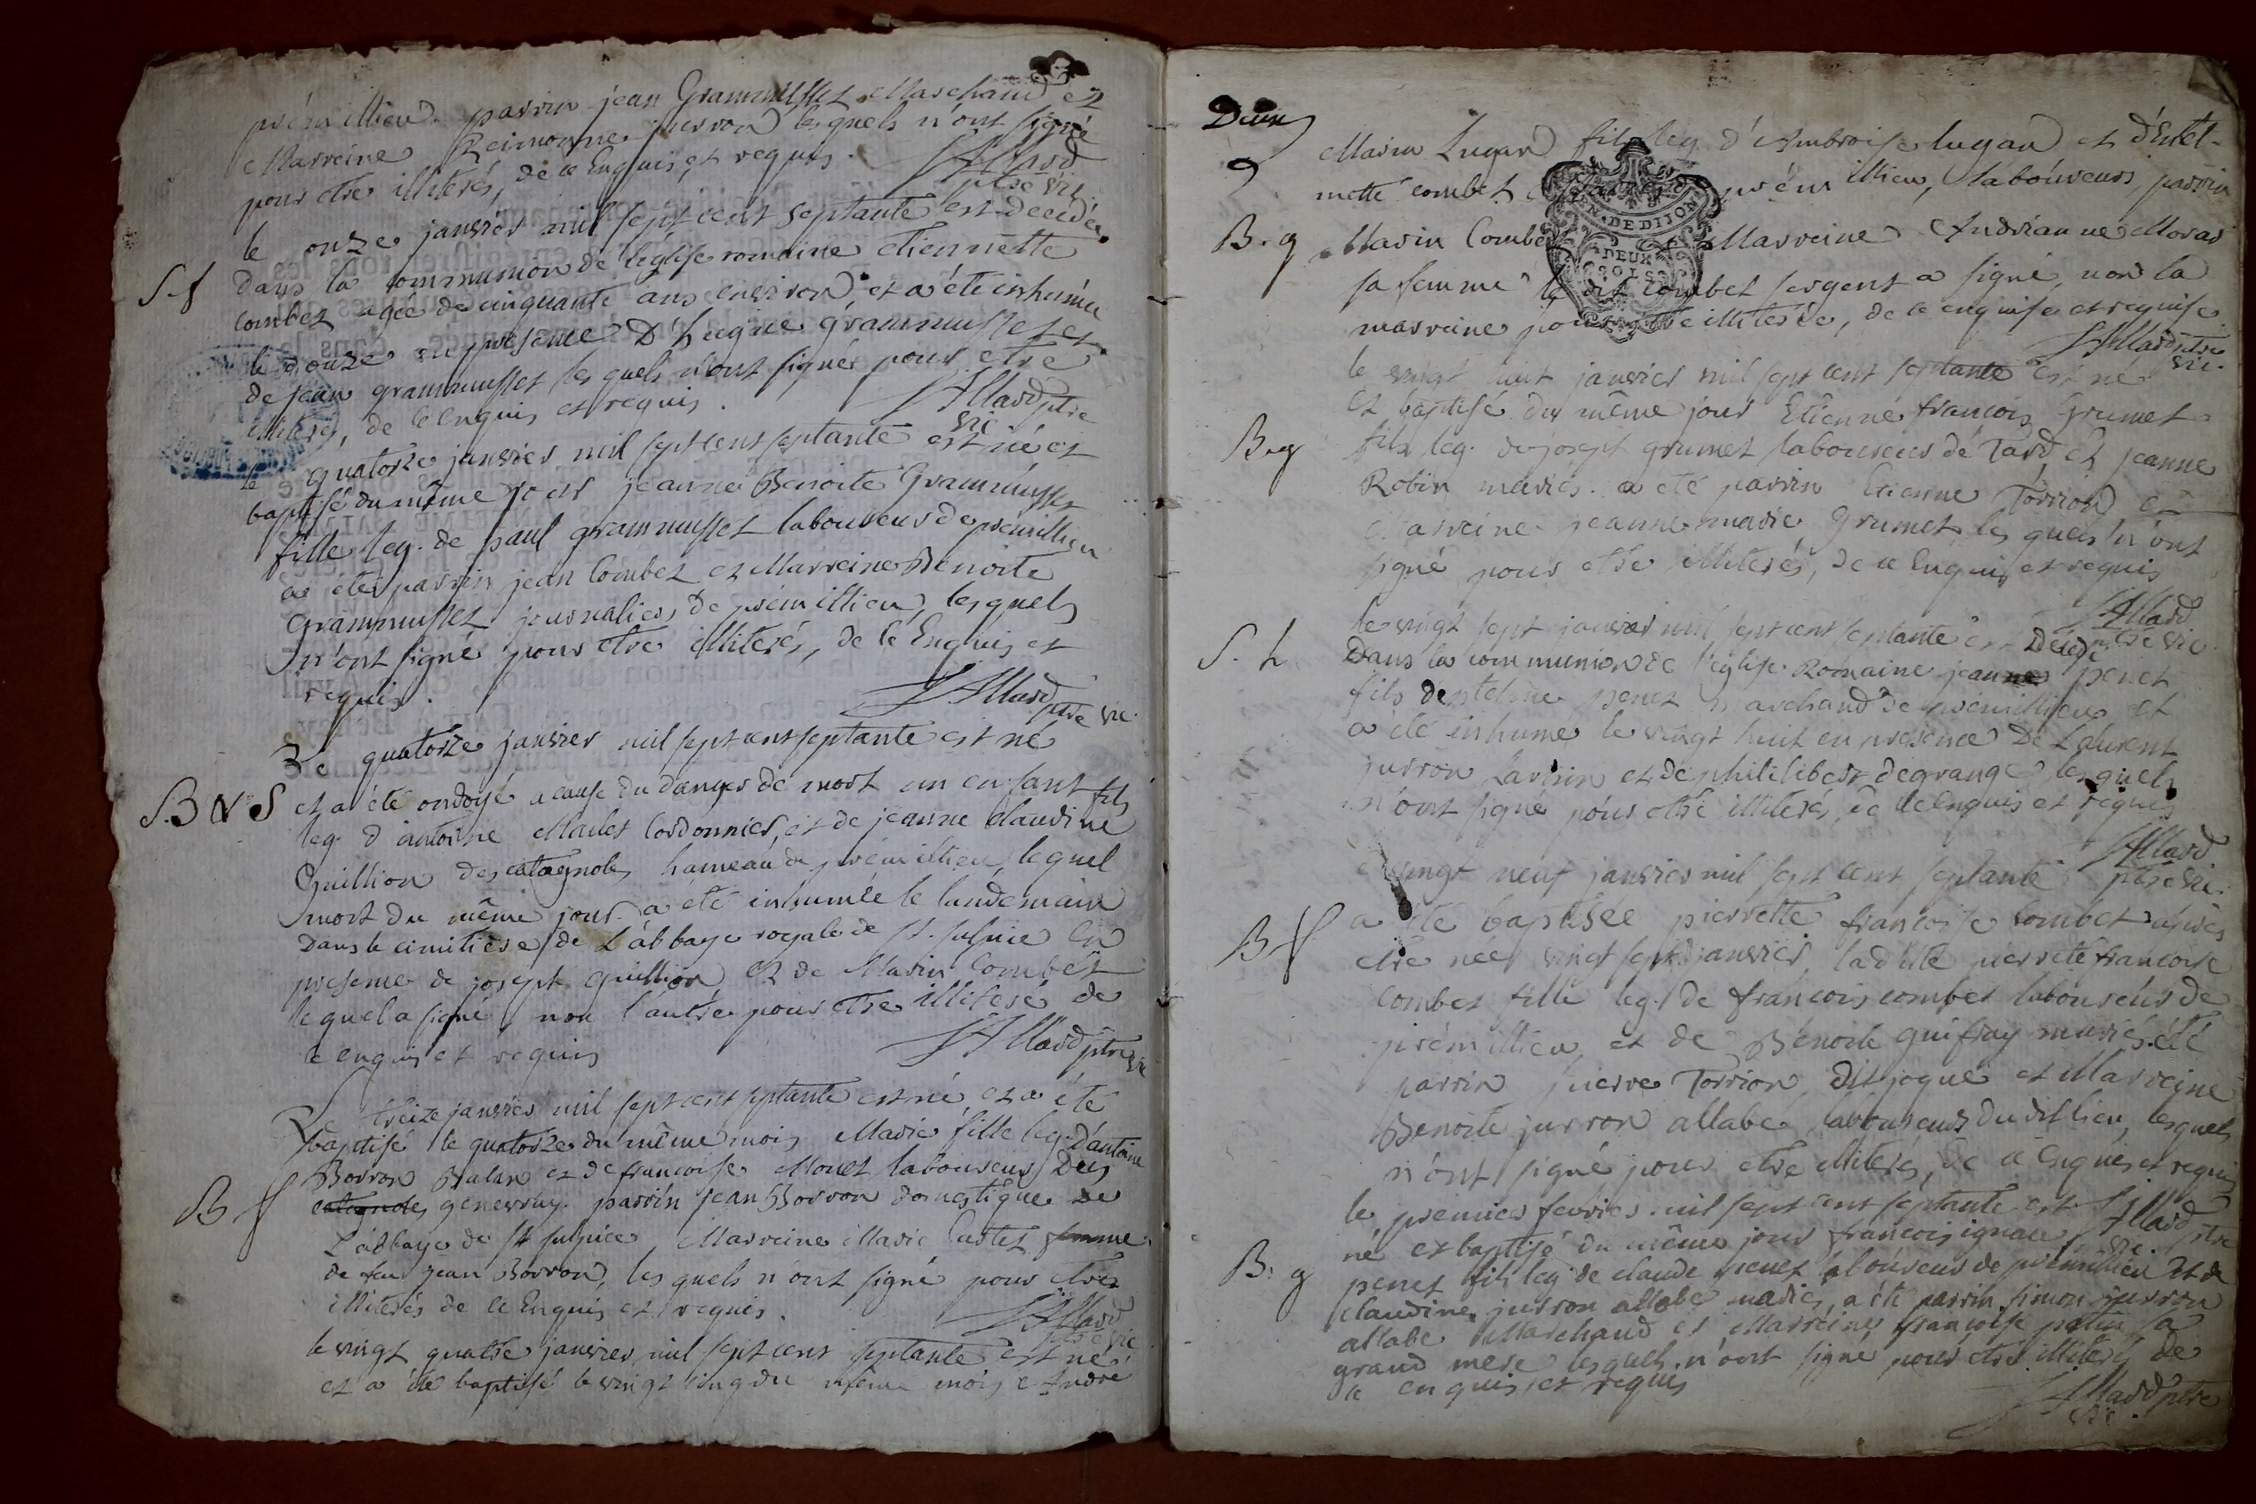 prémillieu. parrin jean Grammusset Marchand et
Marreine Reimonne jurron lesquels n'ont signé
pour etre illiterés, de ce Enquis, et requis.
Allard
ptre vic.
le onze janvier mil sept cent septante est decedée
S. f
dans la communion de l'église romaine etiennette
combet agée de cinquante ans environ, et a été inhumée
le douze en presence D'hugue grammusset et
de jean grammusset lesquels n'ont signés pour etre
illiterés, de ce enquis et requis.
Allard ptre
vic
le quatorze janvier mil sept cent septante est né et
baptisé du même jour jeanne Benoite Grammusset
fille leg. de paul grammusset laboureur de premillieu
a été parrin jean Combet et Marreine Benoite
Grammusset journaliers de prémillieu, lesquels
n'ont signé pour etre illiterés, de ce Enquis et
requis.
Allard ptre vic.
Le quatorze janvier mil sept cent septante est né
B & S
et a été ondoyé a cause du danger de mort un enfant fils
leg. d'antoine Moulet Cordonnier, et de jeanne Claudine
Guillion des catagnoles hameau de prémillieu, lequel
mort du même jour a été inhumée le landemain
Dans le cimitiere de L'abbaye royale de st. sulpice En
presence de joseph guillion et de Marin Combet
lequel a signé, non l'autre pour etre illiteré de
ce enquis et requis
Allard ptre vic
Le treize janvier mil sept cent septante est né et a été
baptisé le quatorze du même mois Marie fille leg. d'antoine
Borron Bulan et de francoise Monet laboureur Des
B f
catagnoles genevray. parrin jean Borron domestique de
L'abbaye de st sulpice, Marreine Marie Castet femme
de feu jean Borron, lesquels n'ont signé pour etre
illiterés de ce Enquis et requis.
Allard
ptre vic
le vingt quatre janvier mil sept cent septante est né
et a été baptisé le vingt cinq du même mois André
Deux
Marin Lugan fils leg. d'Ambroise lugan et d'Entel-
mette combet prémillieu, laboureurs, parrin
B. g
Marin Combet Marreine Andrianne Moras
EN. DE DIJON
DEUX
SOLS
sa femme le dit combet sergent a signé, non la
marreine pour etre illiterée, de ce enquise et requise.
Allard ptre
vic.
le vingt huit janvier mil sept cent septante est né
et baptisé du même jour Etienne francois Grumet
B. g
fils leg. de joseph grumet laboureur de Tard et jeanne
Robin mariés. a été parrin Etienne Torrion et
Marreine jeanne marie Grumet lesquels n'ont
signé pour etre illiterés, de ce Enquis et requis
Allard
ptre vic.
le vingt sept janvier mil sept cent septante est Décedé
S. h
Dans la communion de l'église Romaine jean penet
fils d'entelme penet Marchand de prémillieu et
a été inhumé le vingt huit en presence De Laurent
jurron Lavoin et de philibert degrange lesquels
n'ont signé pour etre illiterés, de ce Enquis et requis
Allard
ptre vic.
le vingt neuf janvier mil sept cent septante
B f
a été baptisée pierrette francoise Combet apres
etre née vingt sept janvier, ladite pierrete francoise
Combet fille leg. de francois combet laboureur de
prémillieu, et de Benoite guifray mariés. été
parrin pierre Torrion Dit joqué et Marreine
Benoite jurron allabé laboureurs Dudit lieu, lesquels
n'ont signé pour etre illiterés, de ce Enquis et requis
Allard ptre
vic.
le premier fevrier mil sept cent septante est
né et baptisé du même jour francois ignace
B. g
penet fils leg. de claude penet laboureur de prémillieu et de
claudine jurron allabe mariés, a été parrin simon jurron
allabe Marchand et Marreine francoise patin sa
grand mere lesquels n'ont signé pour etre illiterés de
ce enquis et requis
Allard ptre
vic.